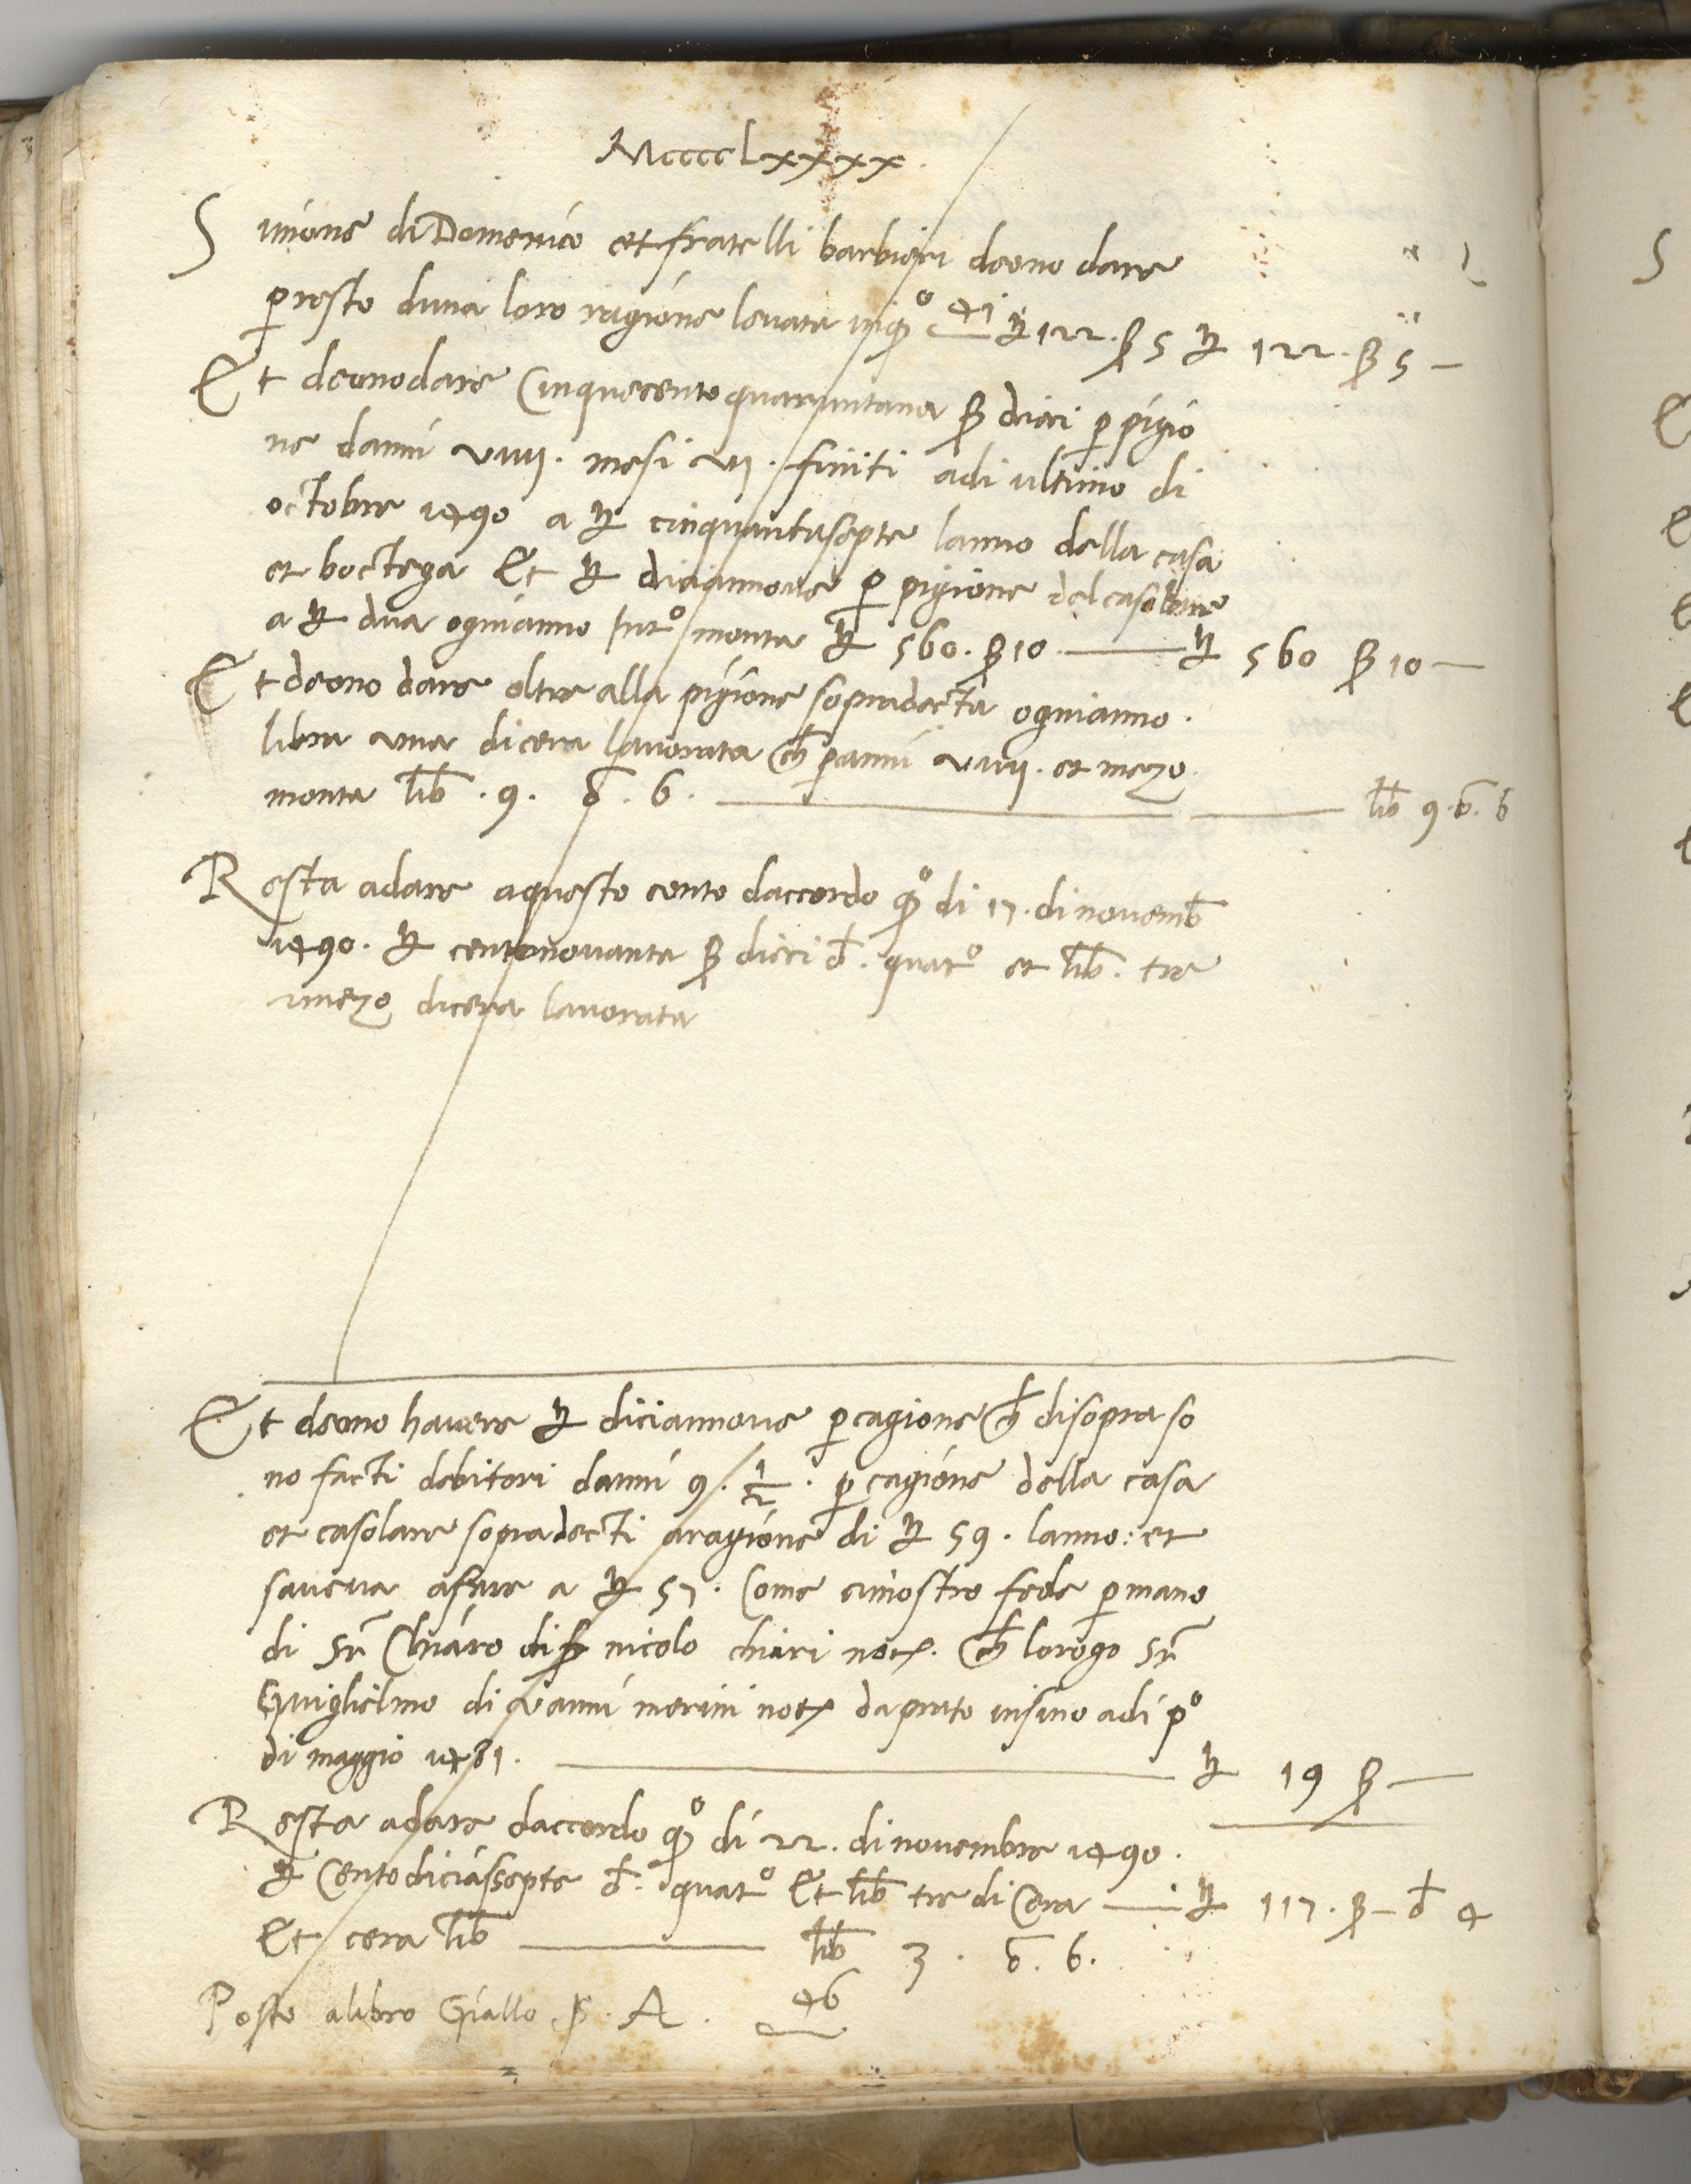 MccccLxxxx.
Simone di Domenico et fratelli barbieri deono dare
p resto duna loro ragione levata in qo 41 ₶ 122. ß 5 ₶ 122. ß 5 —
Et deono dare Cinquecento quarantana ß dieci p pigio
ne danni viiij. mesi vj. finiti adi ultimo di
octobre 1490 a ₶ cinquantasepte lanno della casa
et boctega Et ₶ diciannove p pigione del casolare
a ₶ dua ognianno Intо monta ₶ 560. ß 10. — ₶ 560 ß 10 —
Et deono dare oltre alla pigione sopradecta ognianno.
libra una di cera lavorata ch p anni viiij. et mezo
monta lib. 9. ō. 6. — lib 9. ō. 6
Resta adare a questo conto daccordo qo di 17. di novemb
1490. ₶ centonovanta ß dieci d. quatо et lib. tre
imezo di cera lavorata
Et deono havere ₶ diciannove p cagione ch disopra so
no facti debitori danni 9. 1/2. p cagione della casa
et casolare sopradecti a ragione di ₶ 59. lanno: et
saveva afare a ₶ 57. Come cimostro fede p mano
di Sr Chiaro di nicolo chiari not. ch lorogo Sr
Guiglielmo di vanni merini not da prato insino adi po
di maggio 1481. — ₶ 19 ß —
Resta adare daccordo qo di 22. di novembre 1490.
₶ Centodiciassepte d. quatо Et lib tre di Cera — ₶ 117. ß — d 4
Et cera lib — lib 3. ō. 6.
Posto a libro Giallo s. A. 46